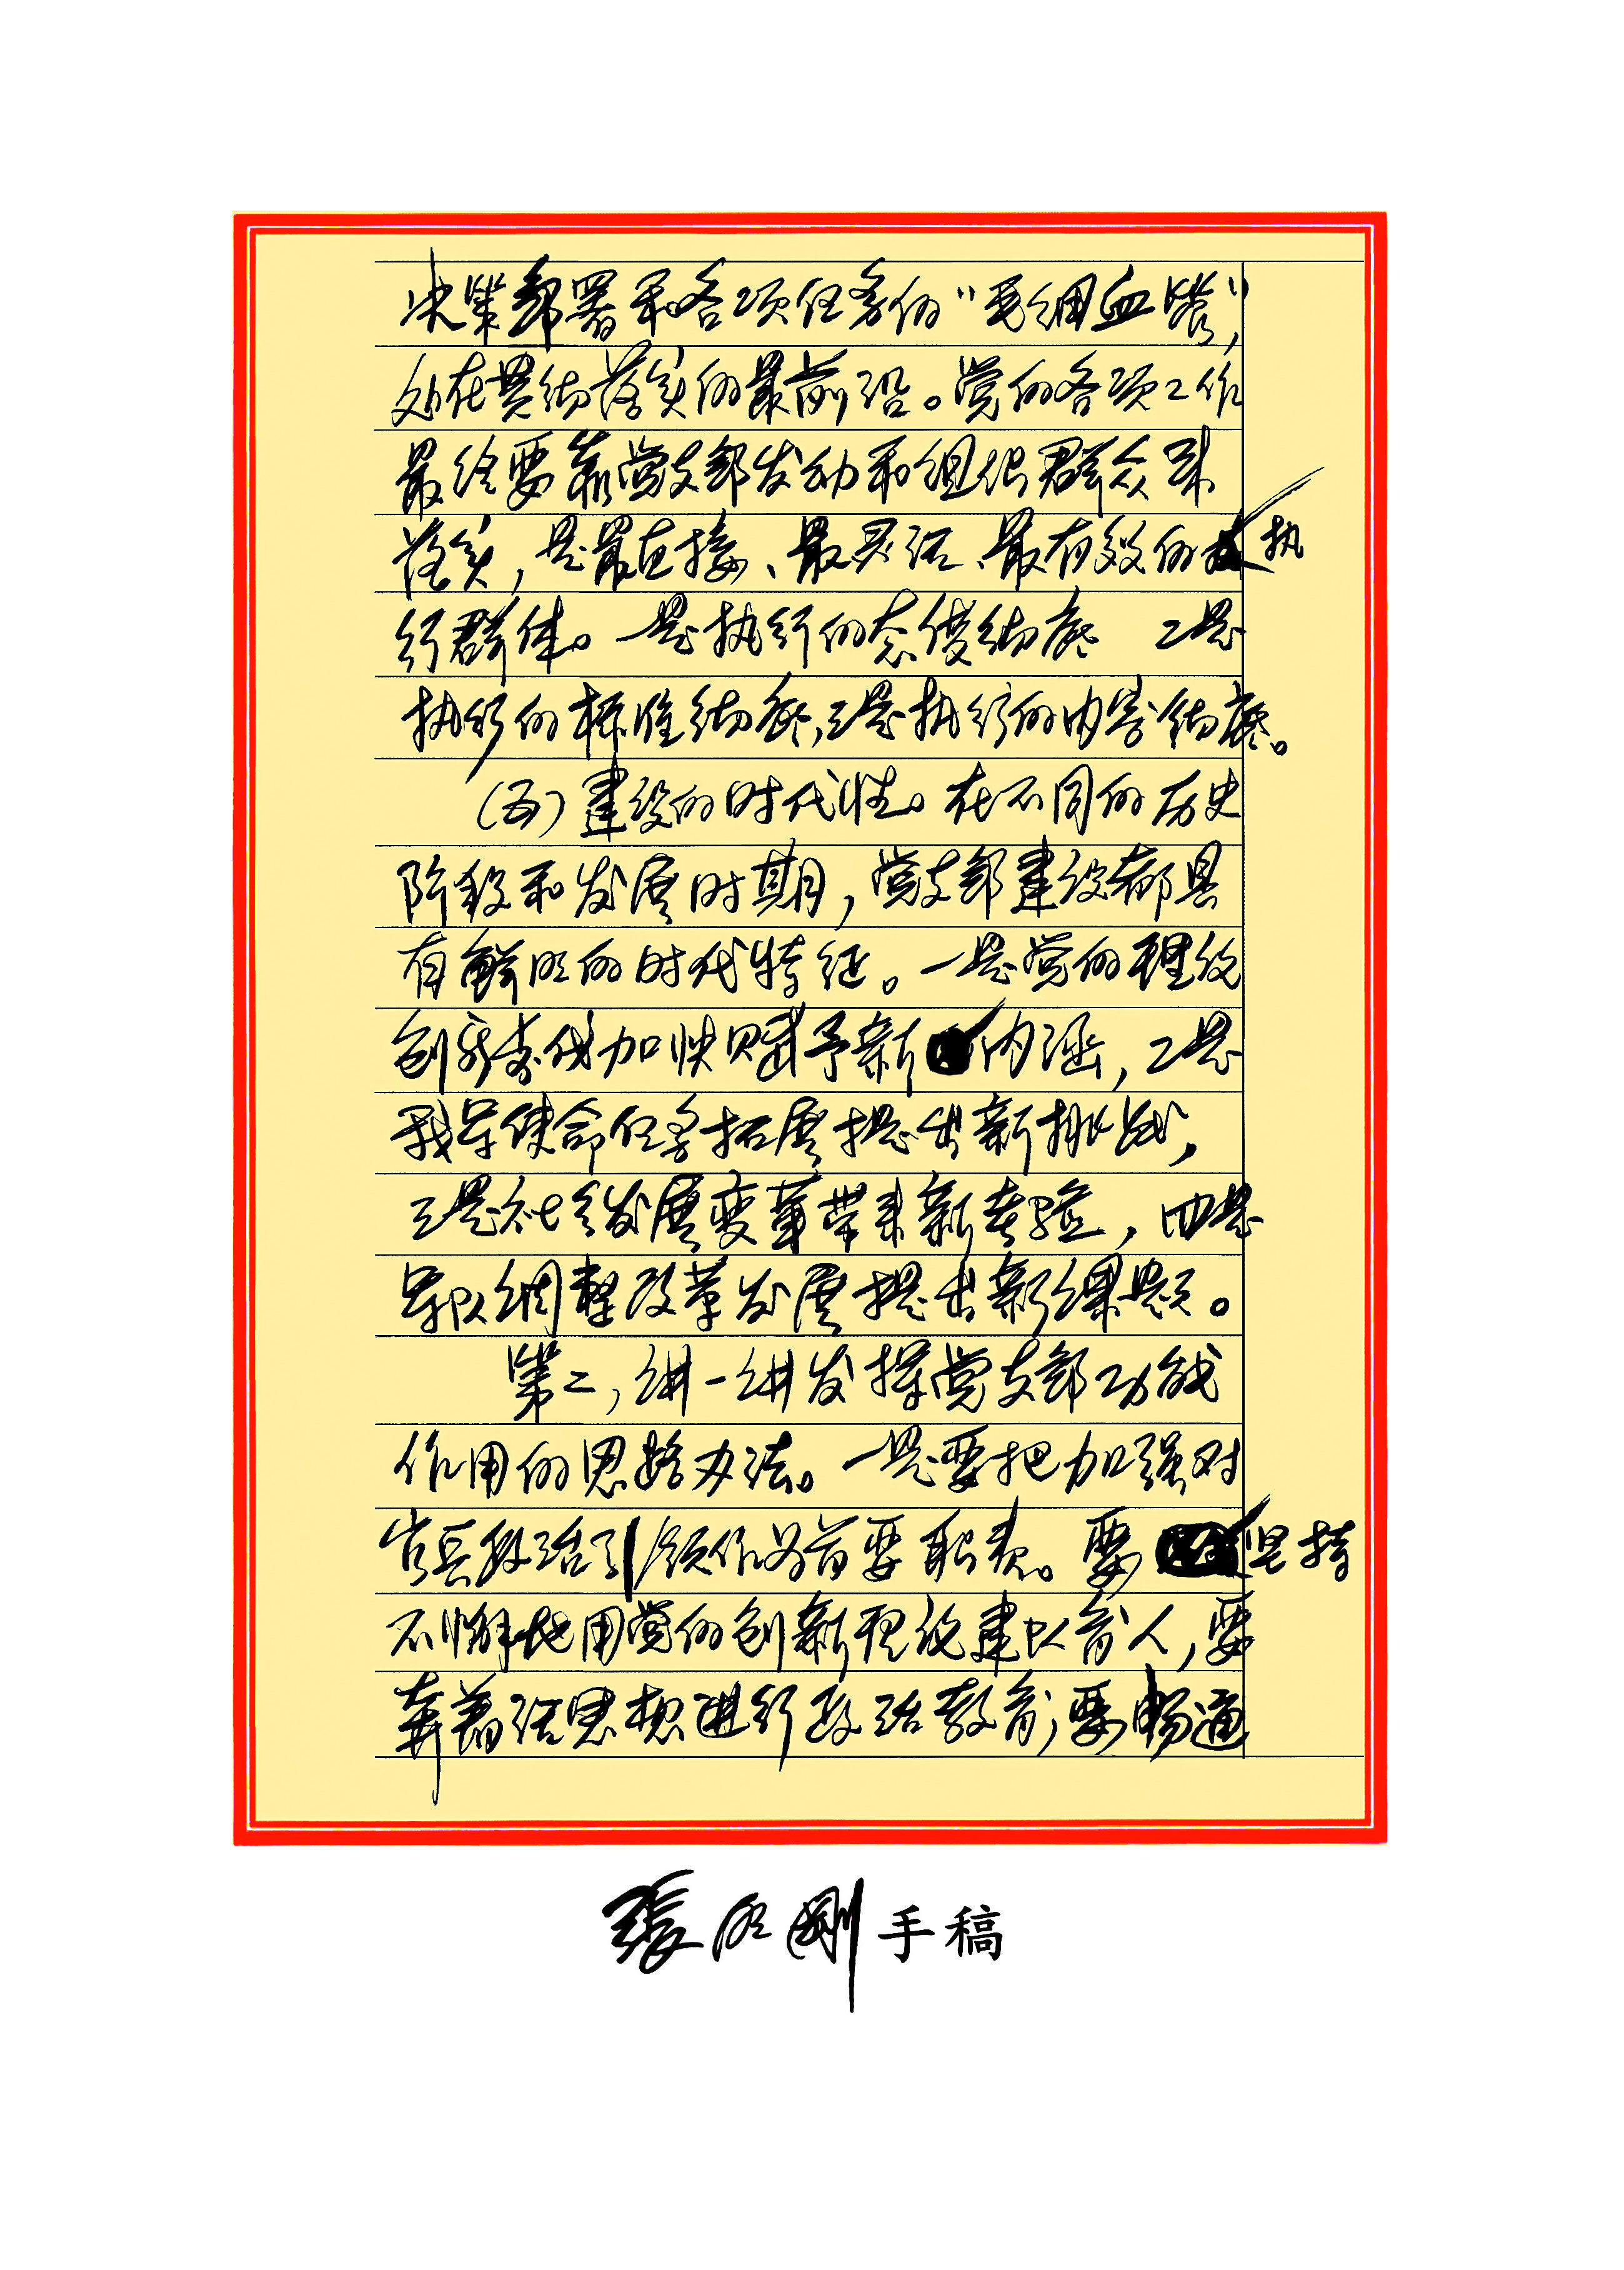 决策部署和各项任务的“毛细血管”，
处在贯彻落实的最前沿。党的各项工作
最终要靠党支部发动和组织群众来
落实，是最直接、最灵活、最有效的执
行群体。一是执行的态度彻底 二是
执行的标准彻底，三是执行的内容彻底。
（五）建设的时代性。在不同的历史
阶段和发展时期，党支部建设都具
有鲜明的时代特征。一是党的理论
创新步伐加快赋予新内涵，二是
我军使命任务拓展提出新挑战，
三是社会发展变革带来新考验，四是
军队调整改革发展提出新课题。
第二，讲一讲发挥党支部功能
作用的思路办法。一是要把加强对
官兵政治引领作为首要职责。要坚持
不懈地用党的创新理论建队育人，要
奔着活思想进行政治教育，要畅通
張 刚手稿